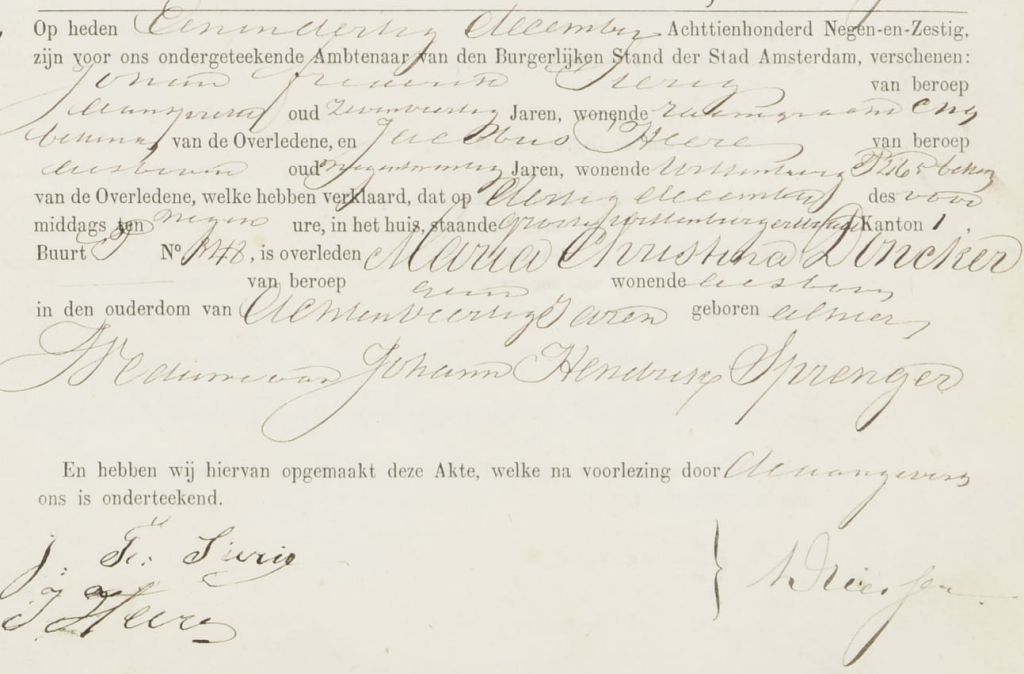 Op heden Eenendertig december Achttienhonderd Negen-en-Zestig,
zijn voor ons ondergeteekende Ambtenaar van den Burgerlijken Stand der Stad Amsterdam, verschenen:
Johann Frederik van beroep
aanspreker oud Jaren, wonende eng
bekende van de Overledene, en Jacobus Heere van beroep
oud Jaren, wonende Wittenburg bekende
van de Overledene, welke hebben verklaard, dat op dertig december des voor
middags ten negen ure, in het huis, staande groote wittenburgerstraat Kanton 1,
Buurt No. 148, is overleden Maria Christina Doncker
van beroep geen wonende alsboven
in den ouderdom van Achtenveertig Jaren geboren alhier
Weduwe van Johann Hendrik Sprenger
En hebben wij hiervan opgemaakt deze Akte, welke na voorlezing door de aangevers
ons is onderteekend.
J. Fr.
J Heere